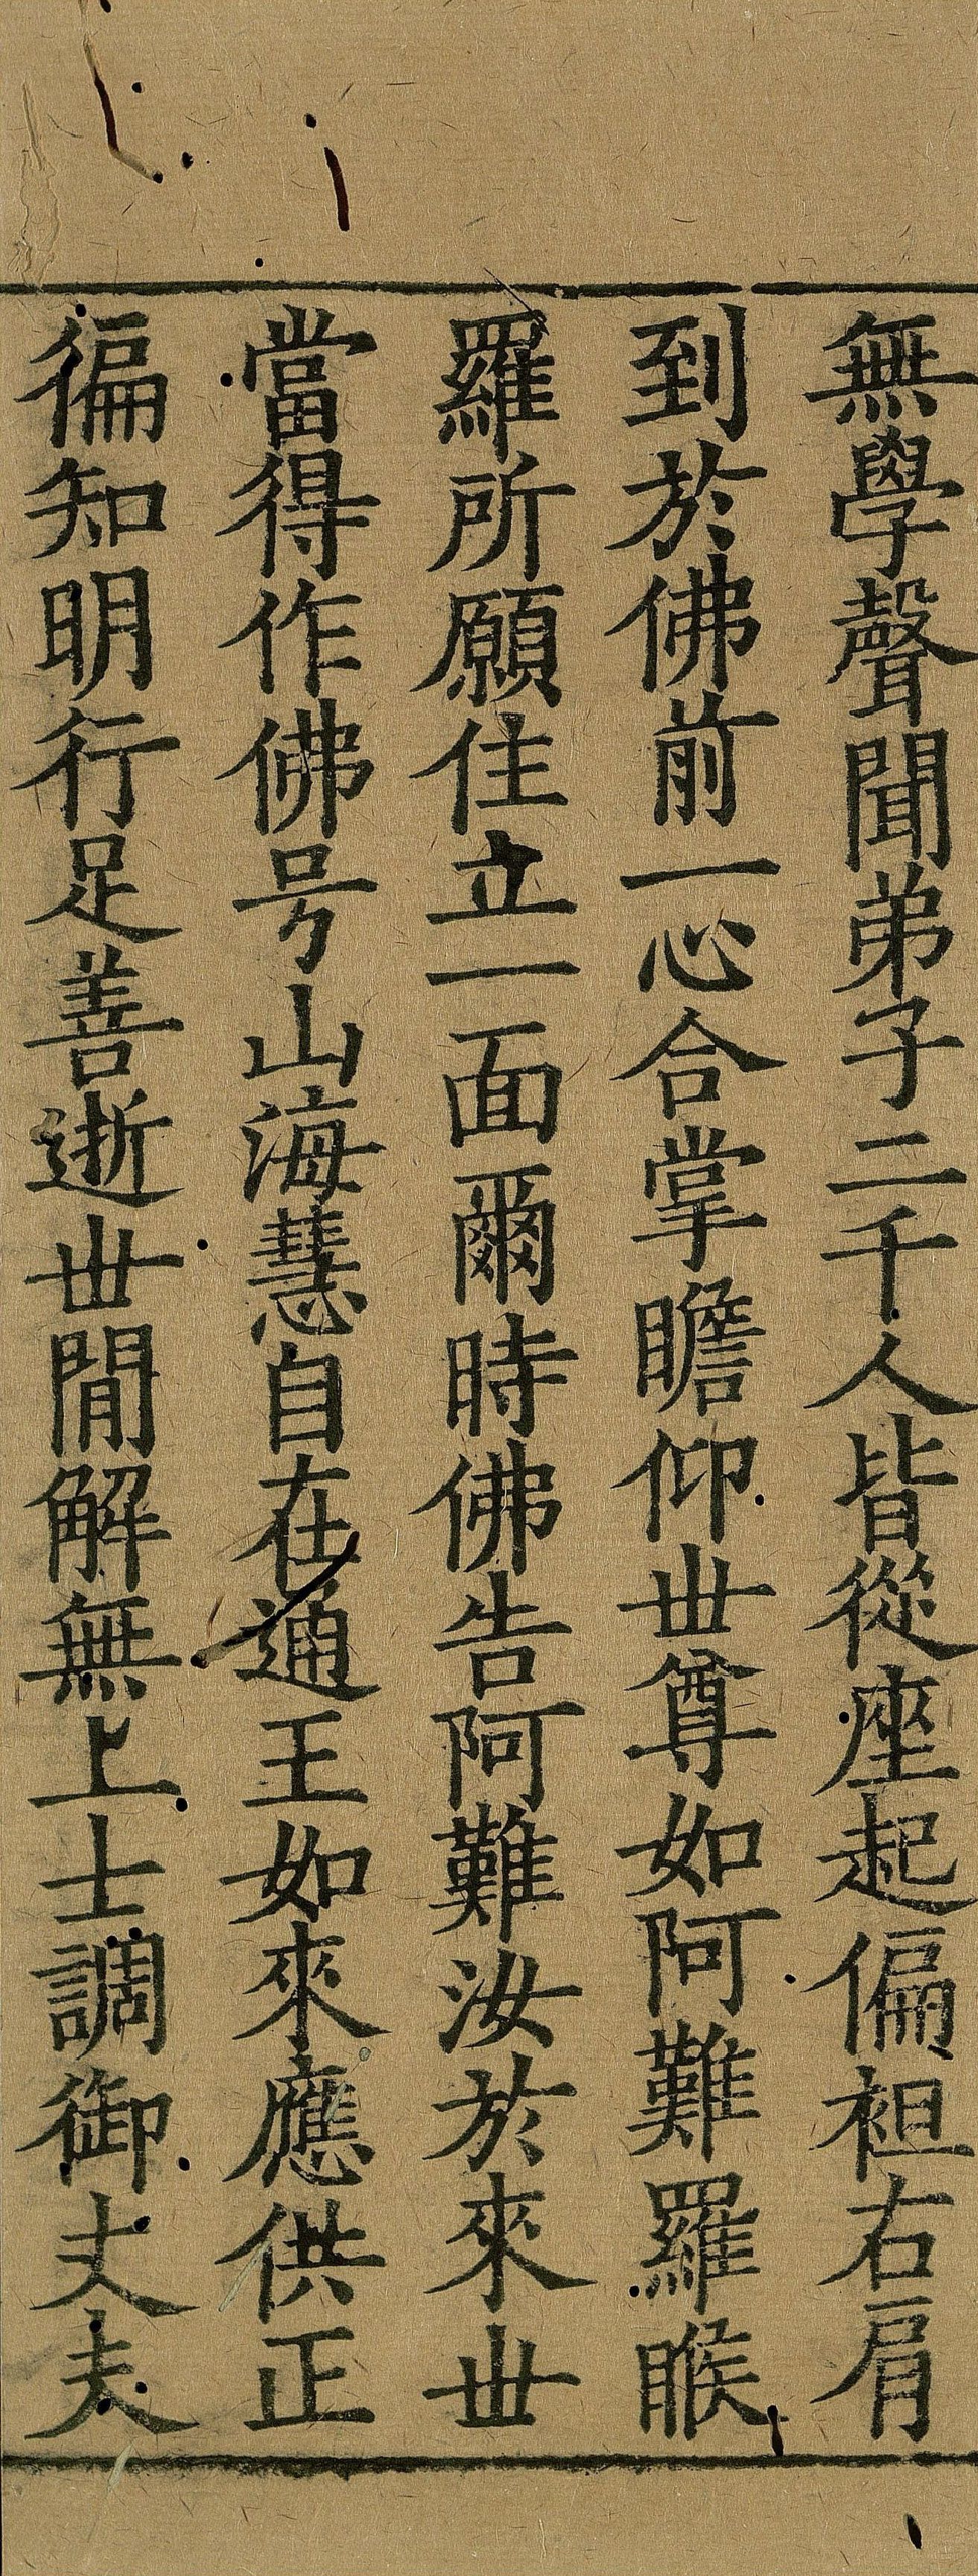 無學聲聞弟子二千人皆從座起偏袒右肩
到於佛前一心合掌瞻仰丗尊如阿難羅睺
羅所願住立一面爾時佛告阿難汝於來丗
當得作佛号山海慧自在通王如來應供正
徧知明行足善逝丗閒解無上士調御丈夫